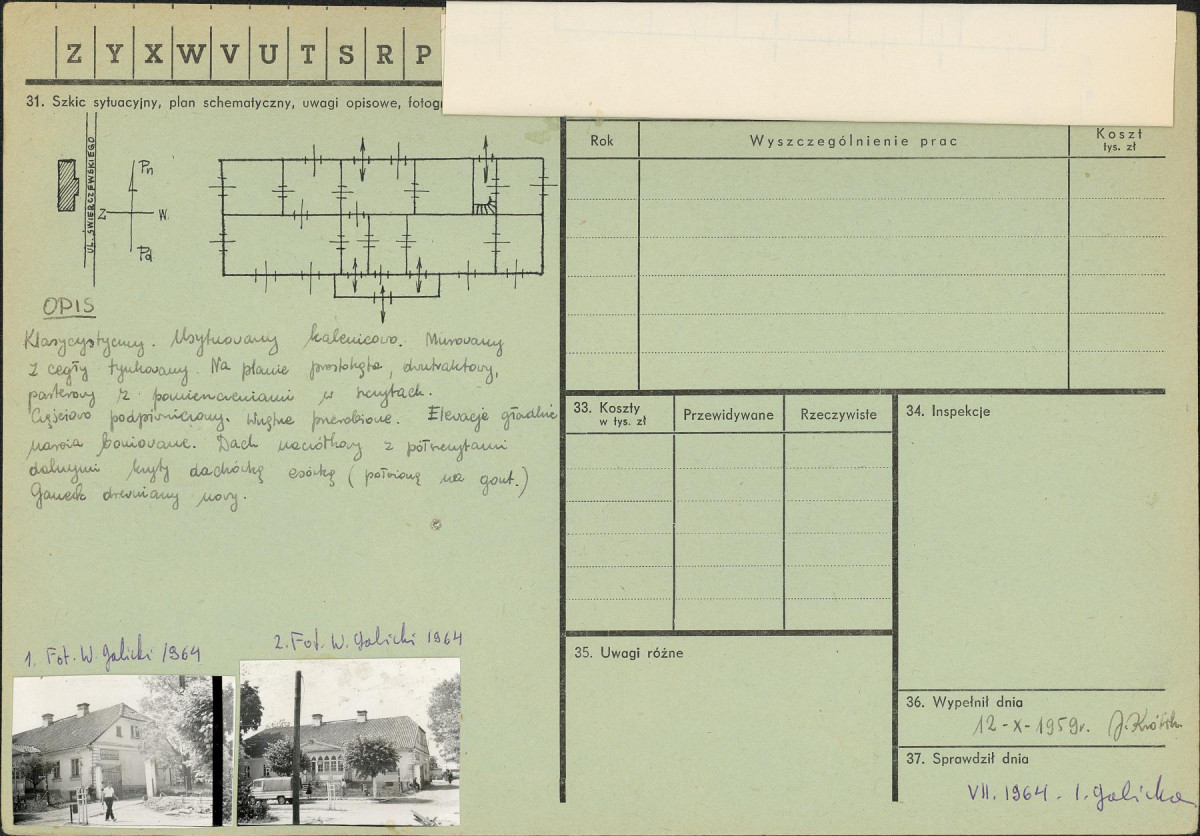 Z Y X W V U T S R P
31. Szkic sytuacyjny, plan schematyczny, uwagi opisowe, fotogr
UL. ŚWIERCZEWSKIEGO
Pn
Z W.
Pd
OPIS
Klasycystyczny. Usytuowany kalenicowo. Murowany
z cegły tynkowany. Na planie prostokąta, dwutraktowy,
parterowy z pomieszczeniami w szczytach.
Częściowo podpiwniczony. Wnętrze przerobione. Elewacje gładkie
naroża boniowane. Dach naczółkowy z półszczytami
dolnymi kryty dachówką esówką (położoną na gont.)
Ganek drewniany nowy.
1. Fot. W. Galicki 1964
2. Fot. W. Galicki 1964
Rok Wyszczególnienie prac Koszt
tys. zł
33. Koszty
w tys. zł
Przewidywane Rzeczywiste
34. Inspekcje
35. Uwagi różne
36. Wypełnił dnia
12-X-1959r. J.
37. Sprawdził dnia
VII. 1964. I. Galicka